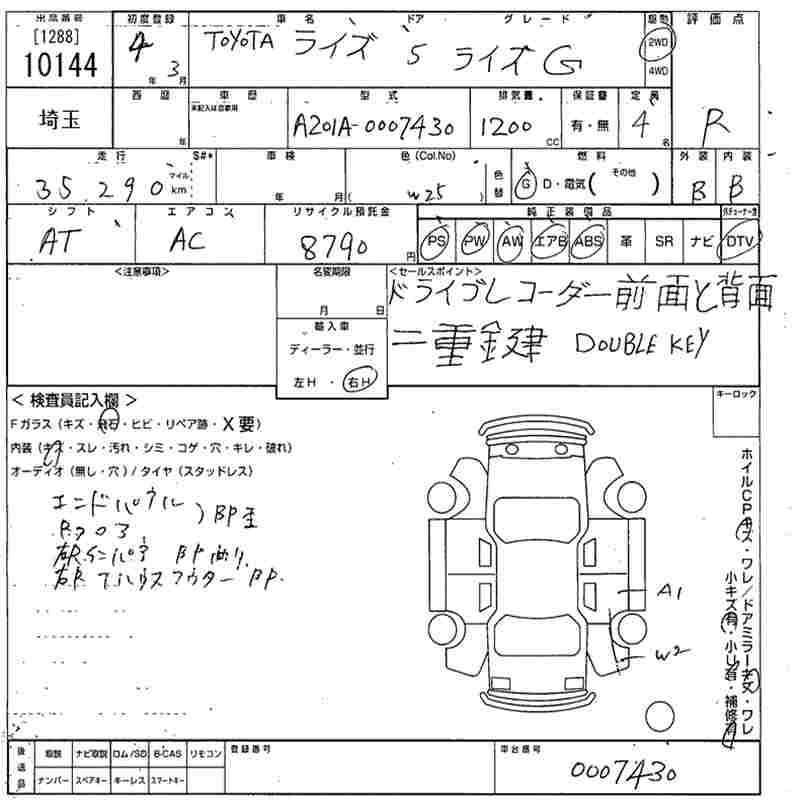 出品番号 初度登録 車名 ドア グレード 駆動 評価点
[1288]
10144 4年 3月 TOYOTA ライズ 5 ライズ G 2WD 4WD R
埼玉 西暦 年 車歴 未記入は自家用 型式 A201A-0007430 排気量 1200 CC 保証書 有・無 定員 4名
走行 S#* 車検 色(Col.No) 燃料 外装 内装
35,290 マイル km 年 月 (W25) 色替 G D・電気( その他 ) B B
シフト エアコン リサイクル預託金 純正装備品
AT AC 8790円 PS PW AW エアB ABS 革 SR ナビ DTV
<注意事項> 名変期限 <セールスポイント>
月 日 ドライブレコーダー前面と背面
輸入車 二重鍵 DOUBLE KEY
ディーラー・並行
左H・右H
キーロック
<検査員記入欄>
Fガラス(キズ・飛石・ヒビ・リペア跡・X要)
内装(キズ・スレ・汚れ・シミ・コゲ・穴・キレ・破れ)
オーディオ(無し・穴)/タイヤ(スタッドレス)
エンドパネル
BP歪
BP曲り
BP.
A1
W2
ホイルCPキズ・ワレ/ドアミラーキズ・ワレ
小キズ有・小凹有・補修有
後送品 取説 ナビ取説 ロム/SD B-CAS リモコン 登録番号 車台番号
ナンバー スペアキー キーレス スマートキー 0007430